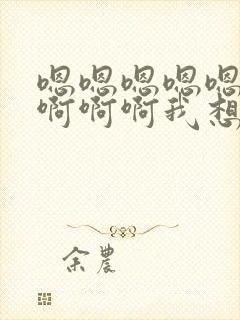 嗯嗯嗯嗯嗯
啊啊啊我想
余農